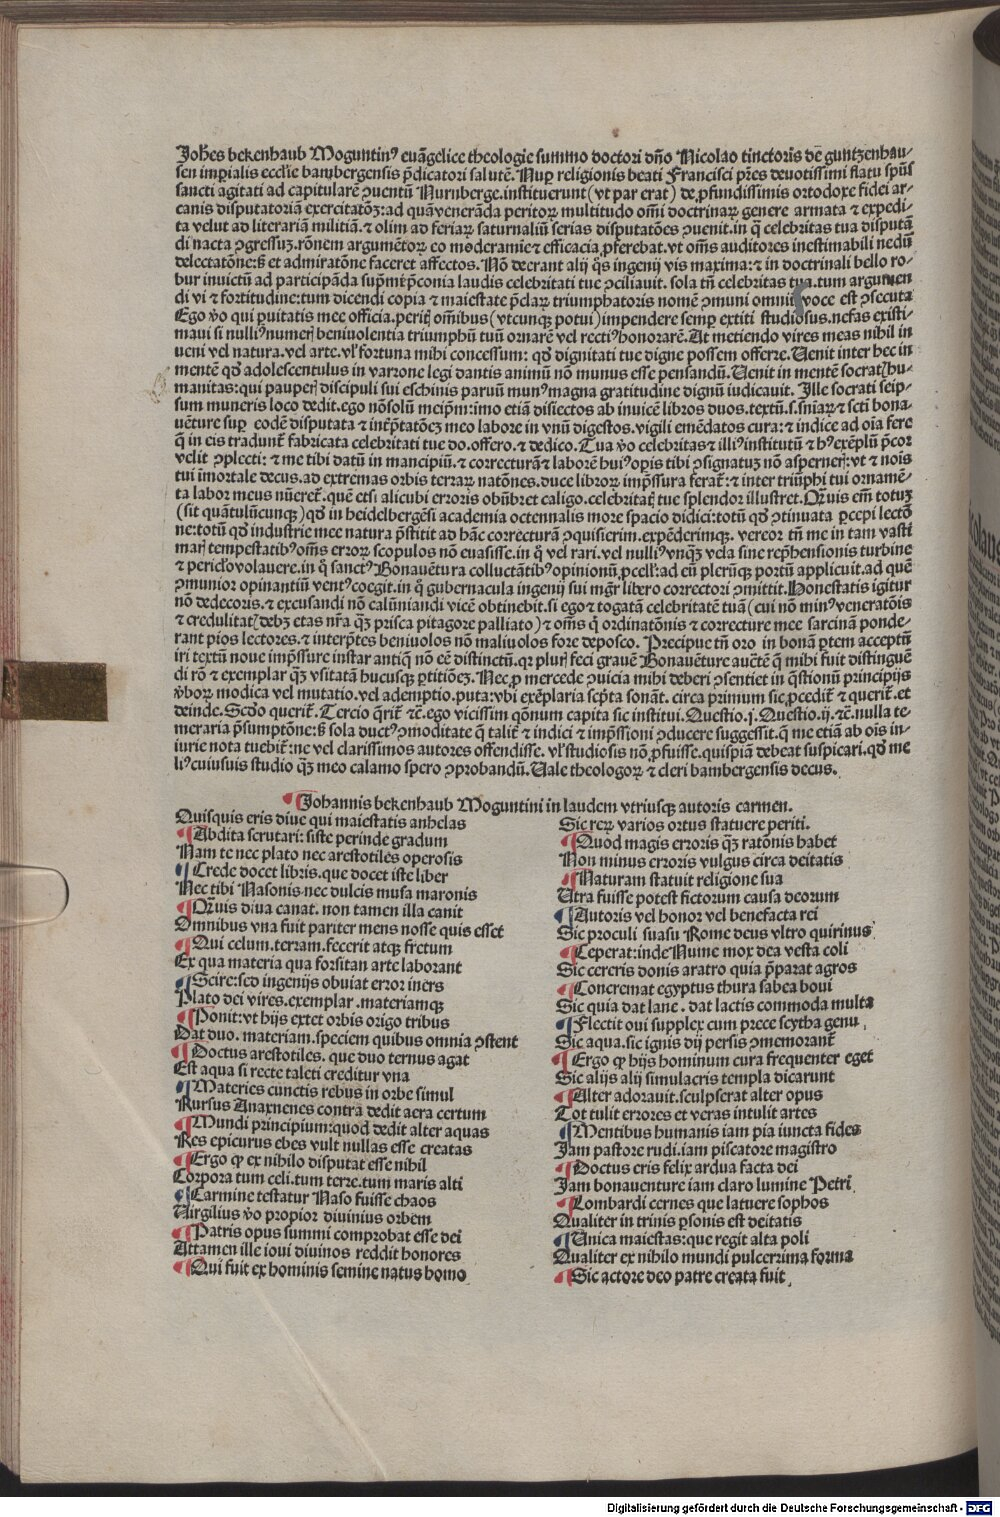 Joh̃es bekenhaub Moguntinꝰ euãgelice theologie summo doctori dño Nicolao tinctoris de guntzenhau⸗
sen imꝑialis ecclie bambergensis p̃dicatori salutẽ. Nuꝑ religionis beati Francisci pr̃es deuotissimi flatu spũs
sancti agitati ad capitularẽ ꝯuentũ Nurnberge.instituerunt (vt par erat) de ꝓfundissimis ortodoxe fidei ar⸗
canis disputatoriã exercitatõꝫ:ad quã venerãda peritoꝝ multitudo om̃i doctrinaꝝ genere armata ⁊ expedi⸗
ta velut ad literariã militiã.⁊ olim ad feriaꝝ saturnaliũ serias disputatões ꝯuenit.in q̃ celebritas tua disputã
di nacta ꝯgressuꝫ.rõnem argumẽtoꝝ eo moderamĩe ⁊ efficacia ꝓferebat.vt om̃s auditores inestimabili nedũ
delectatõne:ß et admiratõne faceret affectos. Nõ deerant alij q̃s ingenij vis maxima:⁊ in doctrinali bello ro⸗
bur inuictũ ad ꝑticipãda sup̃mi p̃conia laudis celebritati tue ꝯciliauit. sola tñ celebritas tua.tum argumen
di vi ⁊ fortitudine:tum dicendi copia ⁊ maiestate p̃claꝝ triumphatoris nomẽ ꝯmuni omniũ voce est ꝯsecuta
Ego ṽo qui ꝑuitatis mee officia.peritꝭ om̃ibus (vtcunqꝫ potui) impendere semꝑ extiti studiosus.nefas existi⸗
maui si nulliꝰ numerꝭ beniuolentia triumphũ tuũ ornarẽ vel rectiꝰ honorarẽ. At metiendo vires meas nihil in
ueni vel natura.vel arte.vl̓ fortuna mihi concessum: qd̓ dignitati tue digne possem offerre. Uenit inter hec in
mentẽ qd̓ adolescentulus in varrone legi dantis animũ nõ munus esse pensandũ. Uenit in mentẽ socratꝭ hu⸗
manitas: qui pauperꝭ discipuli sui eschinis paruũ munꝰ magna gratitudine dignũ iudicauit. Ille socrati seip⸗
sum muneris loco dedit.ego nõ solũ meip̃m:imo etiã disiectos ab inuicẽ libros duos.textũ.s.sniaꝝ ⁊ scti bona⸗
uẽture suꝑ eodẽ disputata ⁊ int̃p̃tatõeꝫ meo labore in vnũ digestos.vigili emẽdatos cura: ⁊ indice ad oĩa fere
q̃ in eis tradunt̃ fabricata celebritati tue do.offero.⁊ dedico. Tua ṽo celebritas ⁊ illiꝰ institutũ ⁊ hꝰ exẽplũ p̃cor
velit ꝯplecti: ⁊ me tibi datũ in mancipiũ.⁊ correcturã ⁊ laborẽ huiꝰ opis tibi ꝯsignatuꝫ nõ aspernerꝭ:vt ⁊ nois
tui im̃ortale decus.ad extremas orbis terraꝝ natõnes.duce libroꝝ imp̃ssura ferat̃: ⁊ inter triũphi tui ornamẽ⸗
ta labor meus nũeret̃.quẽ etsi alicubi erroris obũbret caligo.celebritatꝭ tue splendor illustret. Qꝛuis em̃ totuꝫ
(sit quãtulũcunqꝫ) qd̓ in heidelbergẽsi academia octennalis more spacio didici:totũ qd̓ ꝯtinuata ꝑcepi lectõ
ne:totũ qd̓ industrie mee natura p̃stitit ad hãc correcturã ꝯquisierim.expẽderimqꝫ. vereor tñ me in tam vasti
marꝭ tempestatibꝰ om̃s erroꝝ scopulos nõ euasisse.in q̃ vel rari.vel nulliꝰ vnq̃ꝫ vela sine rep̃hensionis turbine
⁊ periclo volauere.in q̃ sanctꝰ Bonauẽtura colluctãtibꝰ opinionũ ꝓcellꝭ:ad eũ plerũqꝫ portũ applicuit.ad quẽ
ꝯmunior opinantiũ ventꝰ coegit.in q̃ gubernacula ingenij sui mgr̃ libero correctori ꝯmittit. Honestatis igitur
nõ dedecoris.⁊ excusandi nõ calũniandi vicẽ obtinebit.si ego ⁊ togatã celebritatẽ tuã (cui nõ minꝰ veneratõis
⁊ credulitatꝭ debꝫ etas nr̃a q̃ꝫ prisca pitagore palliato) ⁊ om̃s q̃ ordinatõnis ⁊ correcture mee sarcinã ponde⸗
rant pios lectores.⁊ interp̃tes beniuolos nõ maliuolos fore deposco. Precipue tñ oro in bonã ꝑtem acceptũ
iri textũ noue imp̃ssure instar antiq̃ nõ eẽ distinctũ.qꝛ plurꝭ feci grauẽ Bonauẽture auctẽ q̃ mihi fuit distinguẽ
di rõ ⁊ exemplar q̃ꝫ vsitatã hucusqꝫ ꝑtitiõeꝫ. Nec ꝓ mercede ꝯuicia mihi deberi ꝯsentiet in q̃stionũ principijs
ṽboꝝ modica vel mutatio.vel ademptio.puta:vbi exẽplaria scp̃ta sonãt. circa primum sic ꝓcedit̃ ⁊ querit̃.et
deinde. Scd̓o querit̃. Tercio q̃rit̃ ⁊c̃.ego vicissim q̃õnum capita sic institui. Questio.j. Questio.ij.⁊c̃.nulla te⸗
meraria p̃sumptõne:ß sola ductꝰ ꝯmoditate q̃ talit̃ ⁊ indici ⁊ imp̃ssioni ꝯducere suggessit.q̃ me etiã ab ois in⸗
iurie nota tuebit̃:ne vel clarissimos autores offendisse. vl̓ studiosis nõ ꝓfuisse.quispiã debeat suspicari.qd̓ me
liꝰ cuiusuis studio q̃ꝫ meo calamo spero ꝯprobandũ. Uale theologoꝝ ⁊ cleri bambergensis decus.
¶Johannis bekenhaub Moguntini in laudem vtriusqꝫ autoris carmen.
Quisquis eris diue qui maiestatis anhelas
¶Abdita scrutari: siste perinde gradum
Nam te nec plato nec arestotiles operosis
¶Crede docet libris.que docet iste liber
Nec tibi Nasonis.nec dulcis musa maronis
¶Qꝛuis diua canat. non tamen illa canit
Omnibus vna fuit pariter mens nosse quis esset
¶Qui celum.terram.fecerit atqꝫ fretum
Ex qua materia qua forsitan arte laborant
¶Scire:sed ingenijs obuiat error iners
Plato dei vires.exemplar.materiamqꝫ
¶Ponit:vt hijs extet orbis origo tribus
Dat duo. materiam.speciem quibus omnia ꝯstent
¶Doctus arestotiles. que duo ternus agat
Est aqua si recte taleti creditur vna
¶Materies cunctis rebus in orbe simul
Rursus Anaxnenes contra dedit aera certum
¶Mundi principium:quod dedit alter aquas
Res epicurus ebes vult nullas esse creatas
¶Ergo ꝙ ex nihilo disputat esse nihil
Corpora tum celi.tum terre.tum maris alti
¶Carmine testatur Naso fuisse chaos
Uirgilius ṽo propior diuinius orbem
¶Patris opus summi comprobat esse dei
Attamen ille ioui diuinos reddit honores
¶Qui fuit ex hominis semine natus homo
Sic reꝝ varios ortus statuere periti.
¶Quod magis erroris q̃ꝫ ratõnis habet
Non minus erroris vulgus circa deitatis
¶Naturam statuit religione sua
Utra fuisse potest fictorum causa deorum
¶Autoris vel honor vel benefacta rei
Sic proculi suasu Rome deus vltro quirinus
¶Ceperat:inde Nume mox dea vesta coli
Sic cereris donis aratro quia p̃parat agros
¶Concremat egyptus thura sabea boui
Sic quia dat lane.dat lactis commoda multa
¶Flectit oui supplex cum prece scytha genu.
Sic aqua.sic ignis dij persis ꝯmemorant̃
¶Ergo ꝙ hijs hominum cura frequenter eget
Sic alijs alij simulacris templa dicarunt
¶Alter adorauit.sculpserat alter opus
Tot tulit errores et veras intulit artes
¶Mentibus humanis iam pia iuncta fides
Jam pastore rudi.iam piscatore magistro
¶Doctus eris felix ardua facta dei
Jam bonauenture iam claro lumine Petri
¶Lombardi cernes que latuere sophos
Qualiter in trinis ꝑsonis est deitatis
¶Unica maiestas:que regit alta poli
Qualiter ex nihilo mundi pulcerrima forma
¶Sic actore deo patre creata fuit.
Digitalisierung gefördert durch die Deutsche Forschungsgemeinschaft - DFG